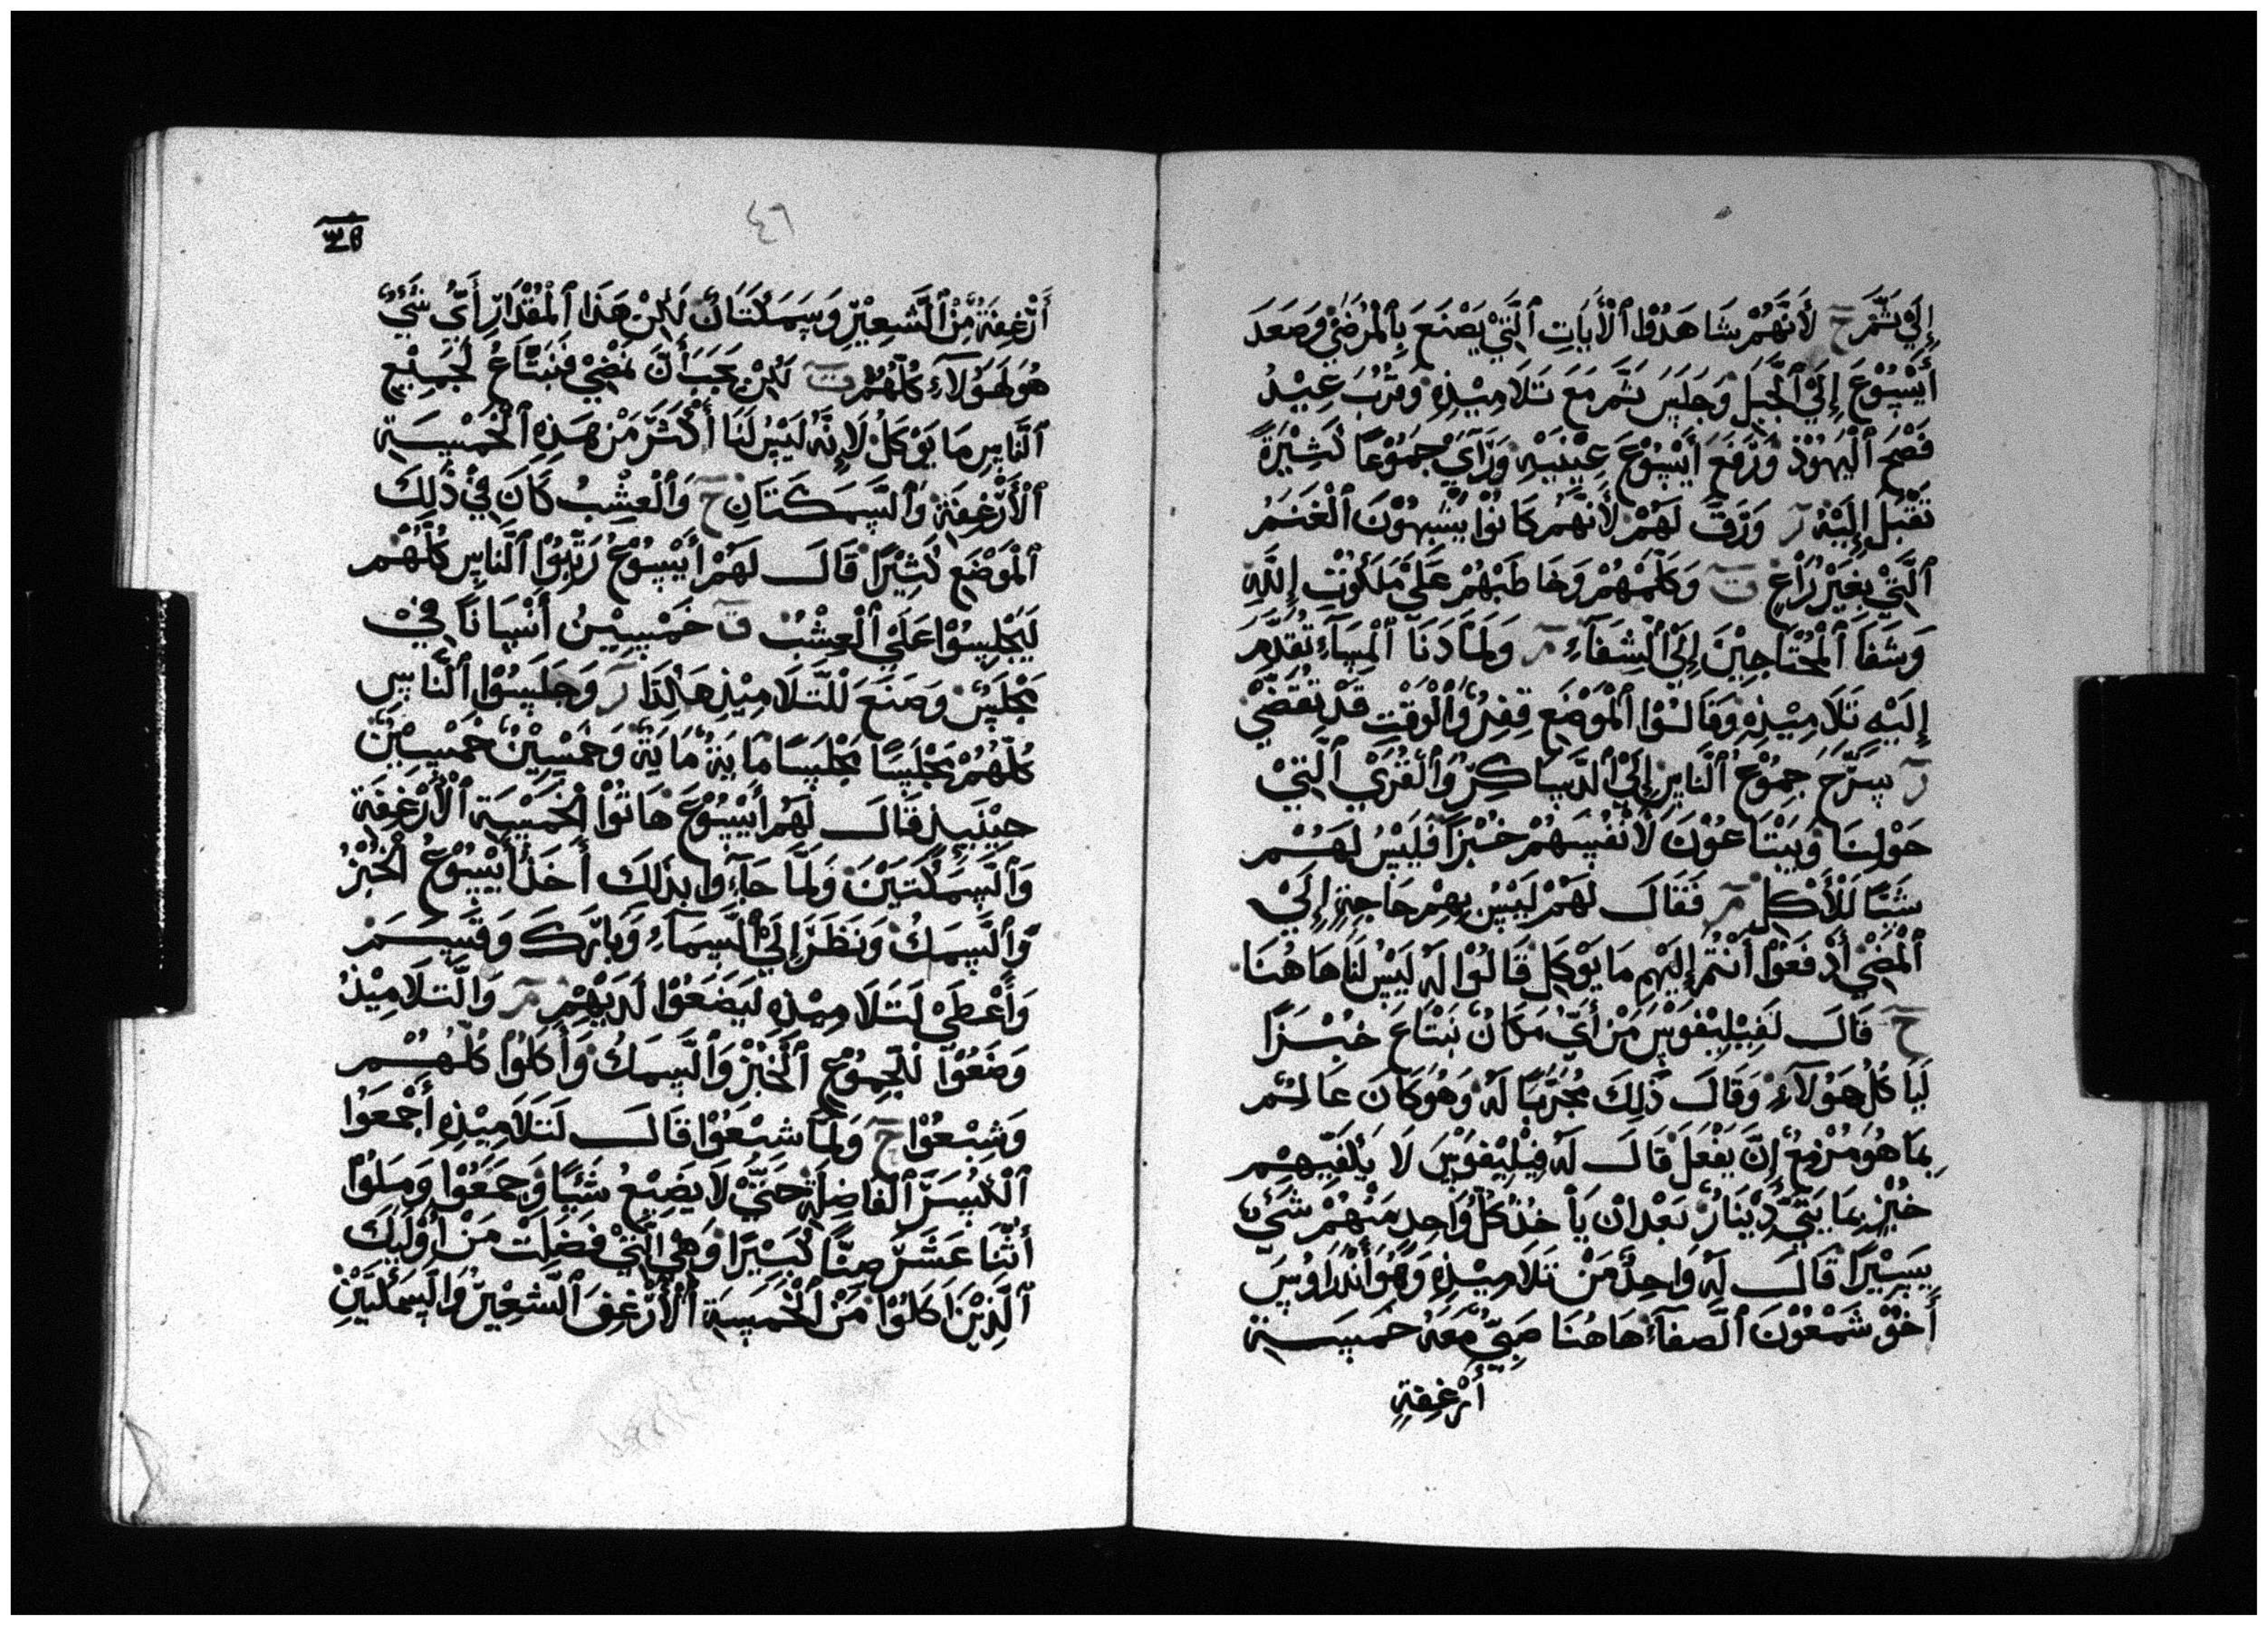 إلي ثم ح لأنهم شاهدوا الأيات التي يصنع بالمرضي وصعد
أيسوع إلي الجبل وجلس ثم مع تلاميذه وقرب عيد
فصح اليهود ورفع أيسوع عينيه ورآي جموعا كثيرة
تقبل إليه ر ورق لهم لأنهم كانوا يشبهون الغنم
التي بغير راع ت وكلمهم وخاطبهم علي ملكوت الله
وشفا المحتاجين إلي الشفاء مر ولما دنا المساء تقدم
إليه تلاميذه وقالوا الموضع قفر والوقت قد تقضي
ر سرح جموع الناس إلي الدساكر والقري التي
حولنا ويبتاعون لأنفسهم خبزا فليس لهم
شئا للأكل مر فقال لهم ليس بهم حاجة إلي
المضي أدفعوا أنتم إليهم ما يوكل قالوا له ليس لنا هاهنا
ح قال لفيليفوس من أي مكان نبتاع خبزا
ليا كل هولاء وقال ذلك مجربا له وهو كان عالم
بما هو مزمع إن يفعل قال له فيليفوس لا يكفيهم
خبز بمايتي دينار بعد ان يأخذ كل واحد منهم شيء
يسيرا قال له واحد من تلاميذه وهو أندراوس
أخو شمعون الصفاء هاهنا صبي معه خمسة
أرغفة
٤٦
أرغفة من الشعير وسمكتان لكن هذا المقدار أي شي
هو لهولاء كلهم ت لكن يجب أن نمضي فنبتاع لجميع
الناس ما يوكل لإنه ليس لنا أكثر من هذه الخمسة
الأرغفة والسمكتان ح والعشب كان في ذلك
الموضع كثيرا قال لهم أيسوع رتبوا الناس كلهم
ليجلسوا علي العشب ق خمسين أنسانا في
مجلس وصنع للتلاميذ هكذا ر وجلسوا الناس
كلهم مجلسا مجلسا ماية ماية وخمسين خمسين
حينيذ قال لهم أيسوع هاتوا الخمسة الأرغفة
والسمكتين ولما جاءوا بذلك أخذ أيسوع الخبز
والسمك ونظر إلي السماء وبارك وقسم
وأعطي لتلاميذه ليضعوا لديهم مر والتلاميذ
وضعوا للجموع الخبز والسمك وأكلوا كلهم
وشبعوا ح ولما شبعوا قال لتلاميذه أجمعوا
الكسر الفاضلة حتي لا يضيع شئيا وجمعوا وملوا
أثنا عشر صنا كسيرا وهي التي فضلت من اوليك
الذين اكلوا من الخمسة الأرغف الشعير والسمكتين